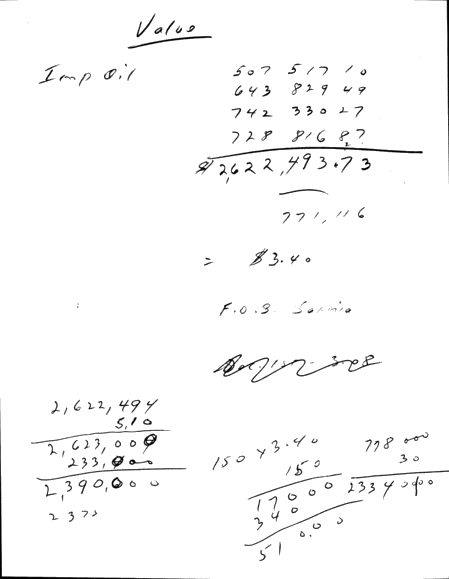 Value
Imp Oil
507 517 10
643 829 49
742 330 27
728 816 87
$2,622,493.73
771,116
= $3.40
F.O.B. Sarnia
2,622,494
5,10
2,623,000
233,000
2,390,000
2370
150 x 3.40
150
17000
340
51 0.00
778 000
30
2334 0000